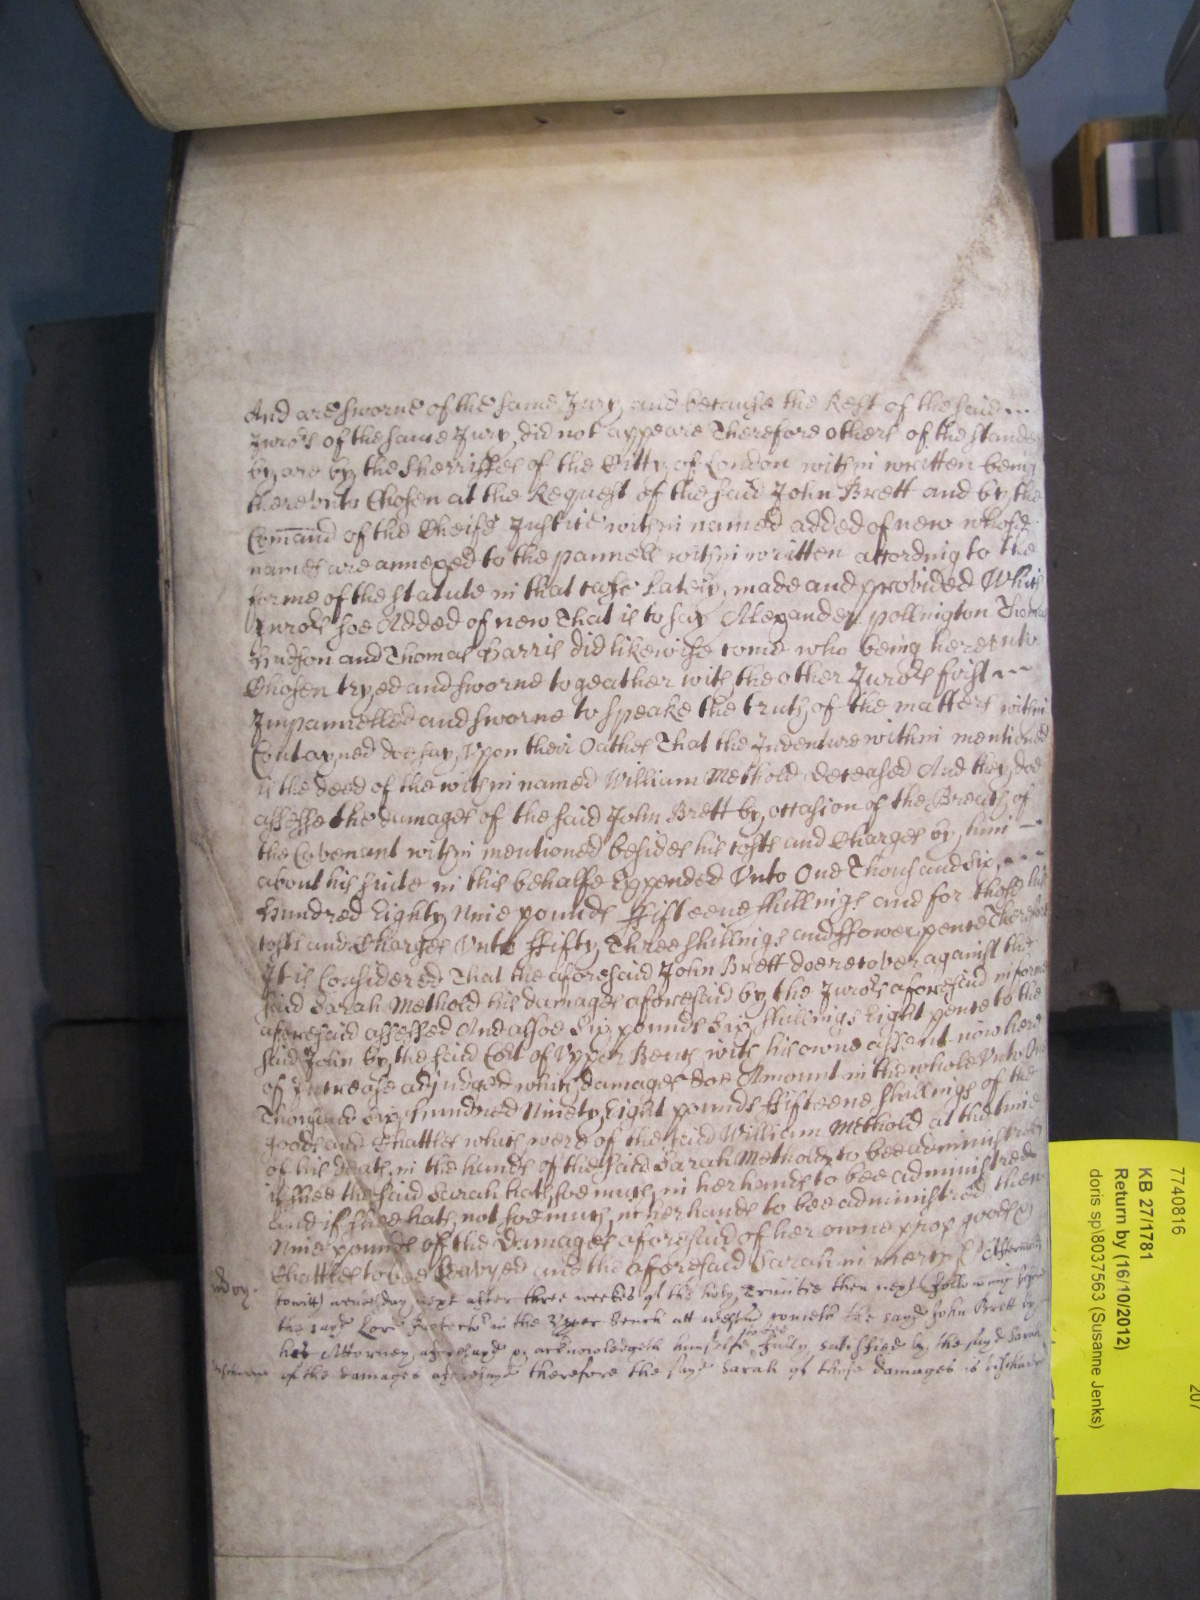 And are sworne of the same Jury, and because the Rest of the said
Jurors of the same Jury, did not appeare Therefore others of the stande
by, are by the Sherriffes of the Citty of London within written being
thereunto Chosen at the Request of the said John Brett and by the
Com̄and of the Cheife Justice within named added of new whose
names are annexed to the pannell within written according to the
forme of the statute in that case Lately, made and provided Which
Jurors soe Added of new That is to say Alexander pollington Thomas
Hudson and Thomas Harris did likewise come who being hereunto
Chosen tryed and sworne togeather with the other Jurors first
Impannelled and sworne to speake the truth of the matters within
Contayned doe say, Upon their Oathes That the Indenture within mentioned
is the deed of the within named William Methold deceased And they doe
assesse the damages of the said John Brett by occasion of the Breach of
the Covenant within mentioned besides his costs and Charges by him
about his suite in this behalfe Expended Unto One Thousand six
Hundred Eighty Nine pounds ffifteene shillings and for those his
costs and Charges Unto ffifty Three shillings and ffower pence Therefore
It is Considered That the aforesaid John Brett doe recover against the
said Sarah Methold his damages aforesaid by the Jurors aforesaid in forme
aforesaid assessed And alsoe Six pounds Six shillings Eight pence to the
said John by the said Cort of Upper Bench with his owne assent now here
of Increase adjudged which damages doe Amount in the whole Unto One
Thousand Six hundred Ninety Eight pounds ffifteene shillings of the
goods and Chattles which were of the said William Methold at the time
of his death in the hands of the said Sarah Methold to bee administred
if shee the said Sarah hath soe much in her hands to bee administred
And if shee hath not soe much in her hands to bee administred then
Nine pounds of the Damages aforesaid of her owne prop goods &
Chattles to bee Leavyed and the aforesaid Sarah in mercy &c Afterwards
towit wensday next after three weekes of the holy Trinitie then next following before
the sayd Lord Protector in the Upper Bench att Westmr cometh the sayd John Brett by
his Attorney aforesayd & acknowledgeth himselfe to bee fully satisfied by the sayd Sarah
of the damages aforesayd therefore the sayd Sarah of those damages is discharged
7740816
KB 27/1781
Return by (16/10/2012)
doris sp\8037563 (Susanne Jenks)
207